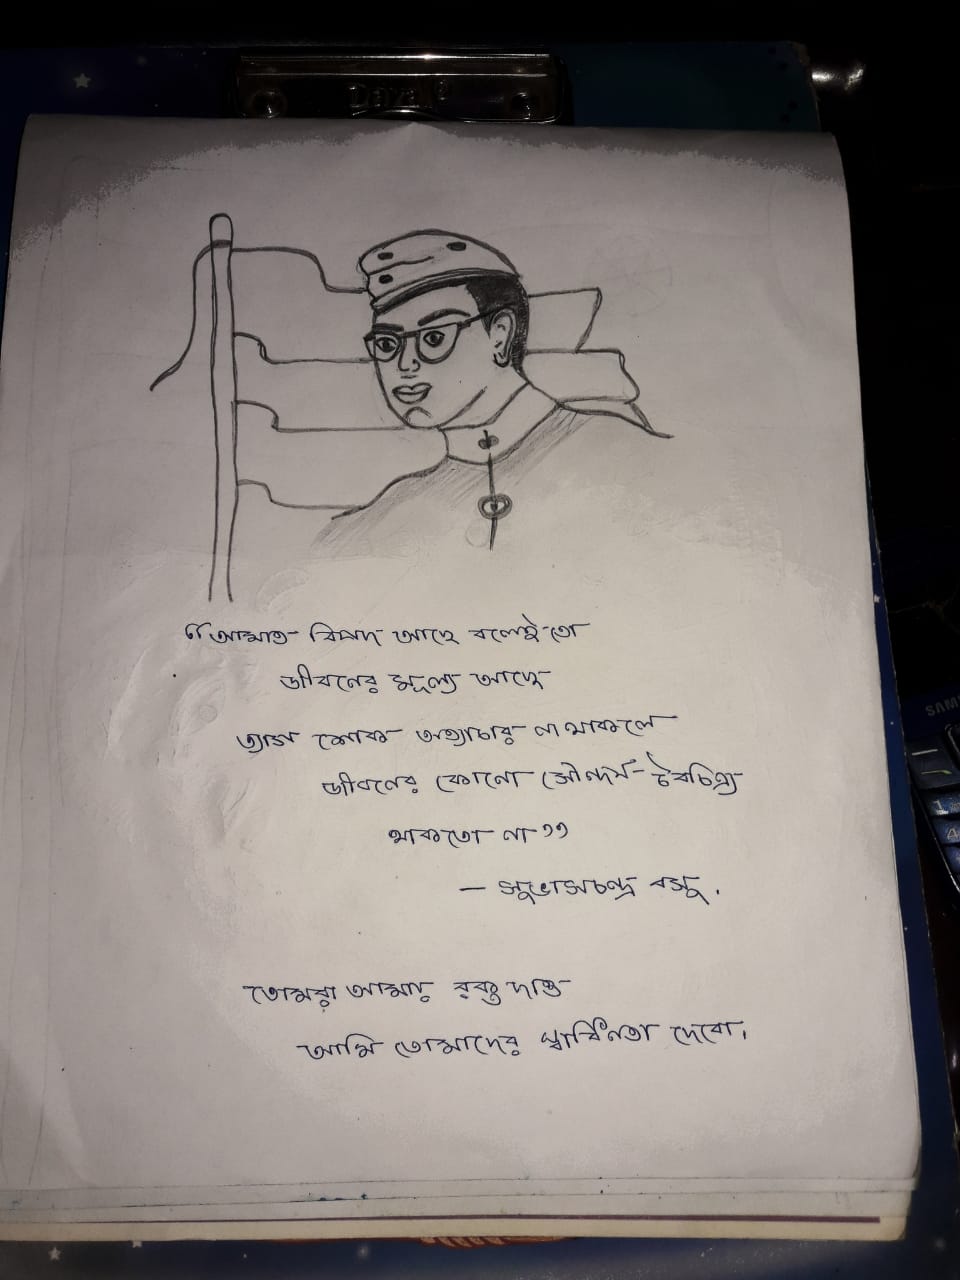 Daya
SAM
1
4
“আঘাত বিপদ আছে বলেই তো
জীবনের মূল্য আছে
ত্যাগ শোক অত্যাচার না থাকলে
জীবনের কোনো সৌন্দর্য- বৈচিত্র্য
থাকতো না ”
— সুভাসচন্দ্র বসু.
তোমরা আমায় রক্ত দাও
আমি তোমাদের স্বাধিনতা দেবো।